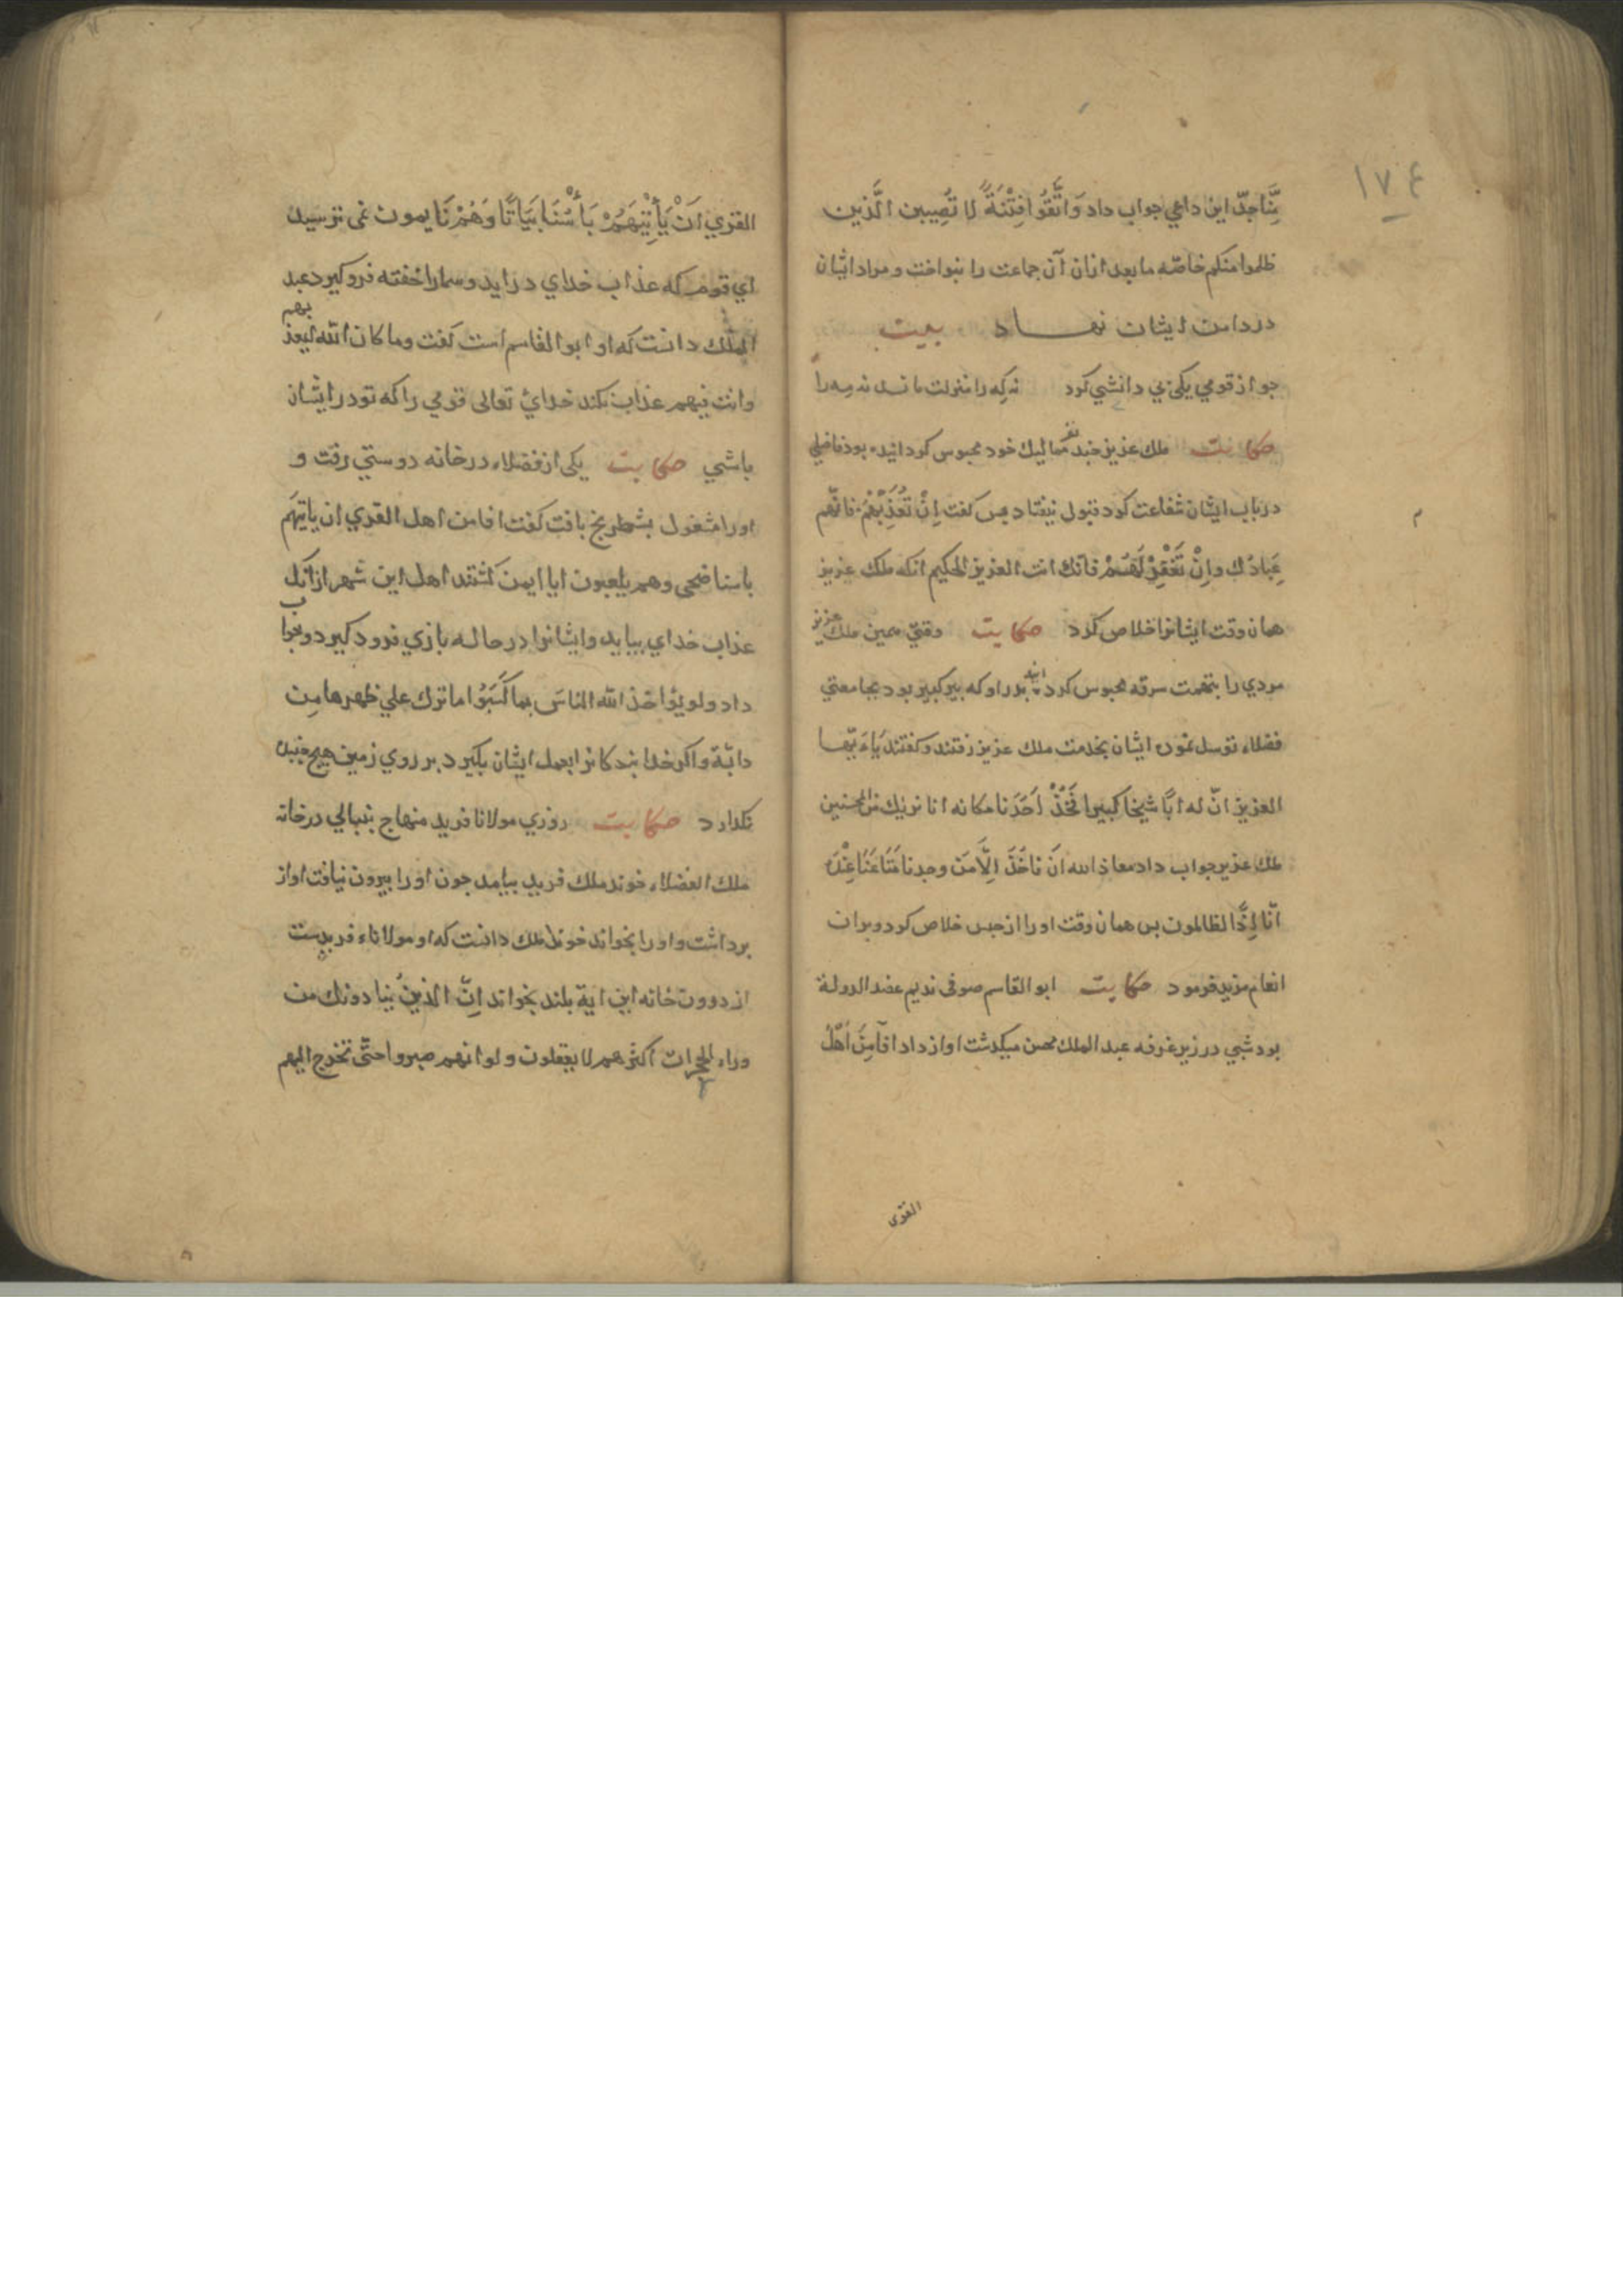 ١٧٤
مِنَّا جدّ این داعی جواب داد وَاتَّقُوا فِتْنَةً لا تُصِیبن الَّذین
ظلموا منکم خاصّه ما بعد ازان آن جماعت را بنواخت و مراد ایشان
در دامن ایشان نهـاد بیت
جو از قومی یکی بی دانشی کرد نه که را منزلت ماند نه مه را
حکایت ملك عزیز جند نفر ممالیك خود محبوس کردانیده بود فاضلی
در باب ایشان شفاعت کرد قبول نیفتاد پس کفت اِنْ تُعَذِّبْهُمْ فانّهم
عِبَادُك واِنْ تَغْفِرْ لَهُمْ فانّك انت العزیز الحکیم آنکه ملك عزیز
همان وقت ایشانرا خلاص کرد حکایت وقتی همین ملك عزیز
مردی را بتهمت سرقه محبوس کردانید بدر او که پیر کبیر بود بجامعتی
فضلاء توسل نمود ایشان بخدمت ملك عزیز رفتند و کفتند یَاءَیّها
العزیز انّ له ابًا شیخا کبیرا فَخُذْ اَحَدَنا مکانه انا نریك من المحسنین
ملك عزیز جواب داد معاذ الله اَن نَاخُذَ اِلَّا مَن وجدنا مَتَاعَنَا عِنْدَهُ
انّا اِذًا لظالمون بس همان وقت اورا از حبس خلاص کرد و بران
انعام مزید فرمود حکایت ابو القاسم صوفی ندیم عضد الدولة
بود شبی در زیر غرفه عبد الملك محسن میکذشت اواز داد افَاَمِنَ اَهْلُ
القرى
القری اَنْ یَأتِیَهُمْ بَأسُنَا بَیَاتًا وَهُمْ نَایمون نمی ترسید
ای قوم که عذاب خدای در اید و شمارا خفته فرو کیرد عبد
الملك دانست که او ابو القاسم است کفت وما کان الله لیعذبهم
وانت فیهم عذاب نکند خدای تعالی قومی را که تو در ایشان
باشی حکایت یکی از فضلاء در خانه دوستی رفت و
اورا مشغول بشطرنج یافت کفت افامن اهل القری ان یاتیَهُم
باسنا ضحی وهم یلعبون ایا ایمن کشتند اهل این شهر از آنك
عذاب خدای بیاید وایشانرا در حاله بازی فرود کیرد و جواب
داد ولو یؤاخذ الله الناسَ بما کَسَبُوا ما ترك علی ظهرها مِن
دابّة و اکر خدا بندکانرا بعمل ایشان بکیرد بر روی زمین هیج جنبنده
نکذارد حکایت روزی مولانا فرید منهاج بنبالی در خانه
ملك الفضلاء خوند ملك فرید بیامد جون اورا بیرون نیافت اواز
برداشت و اورا بخواند خوند ملك دانست که او مولاناء فریدست
از درون خانه این ایة بلند بخواند اِنّ الذینَ ینادونك من
وراء الحجرات اکثرهم لا یعقلون و لو انهم صبروا حتّی تخرج الیهم